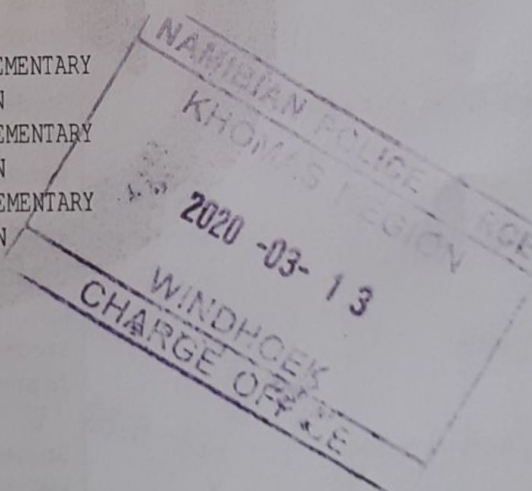 EMENTARY
N
EMENTARY
N
EMENTARY
N
NAMIBIAN POLICE
KHOMAS REGION
2020 -03- 13
WINDHOEK
CHARGE OFFICE